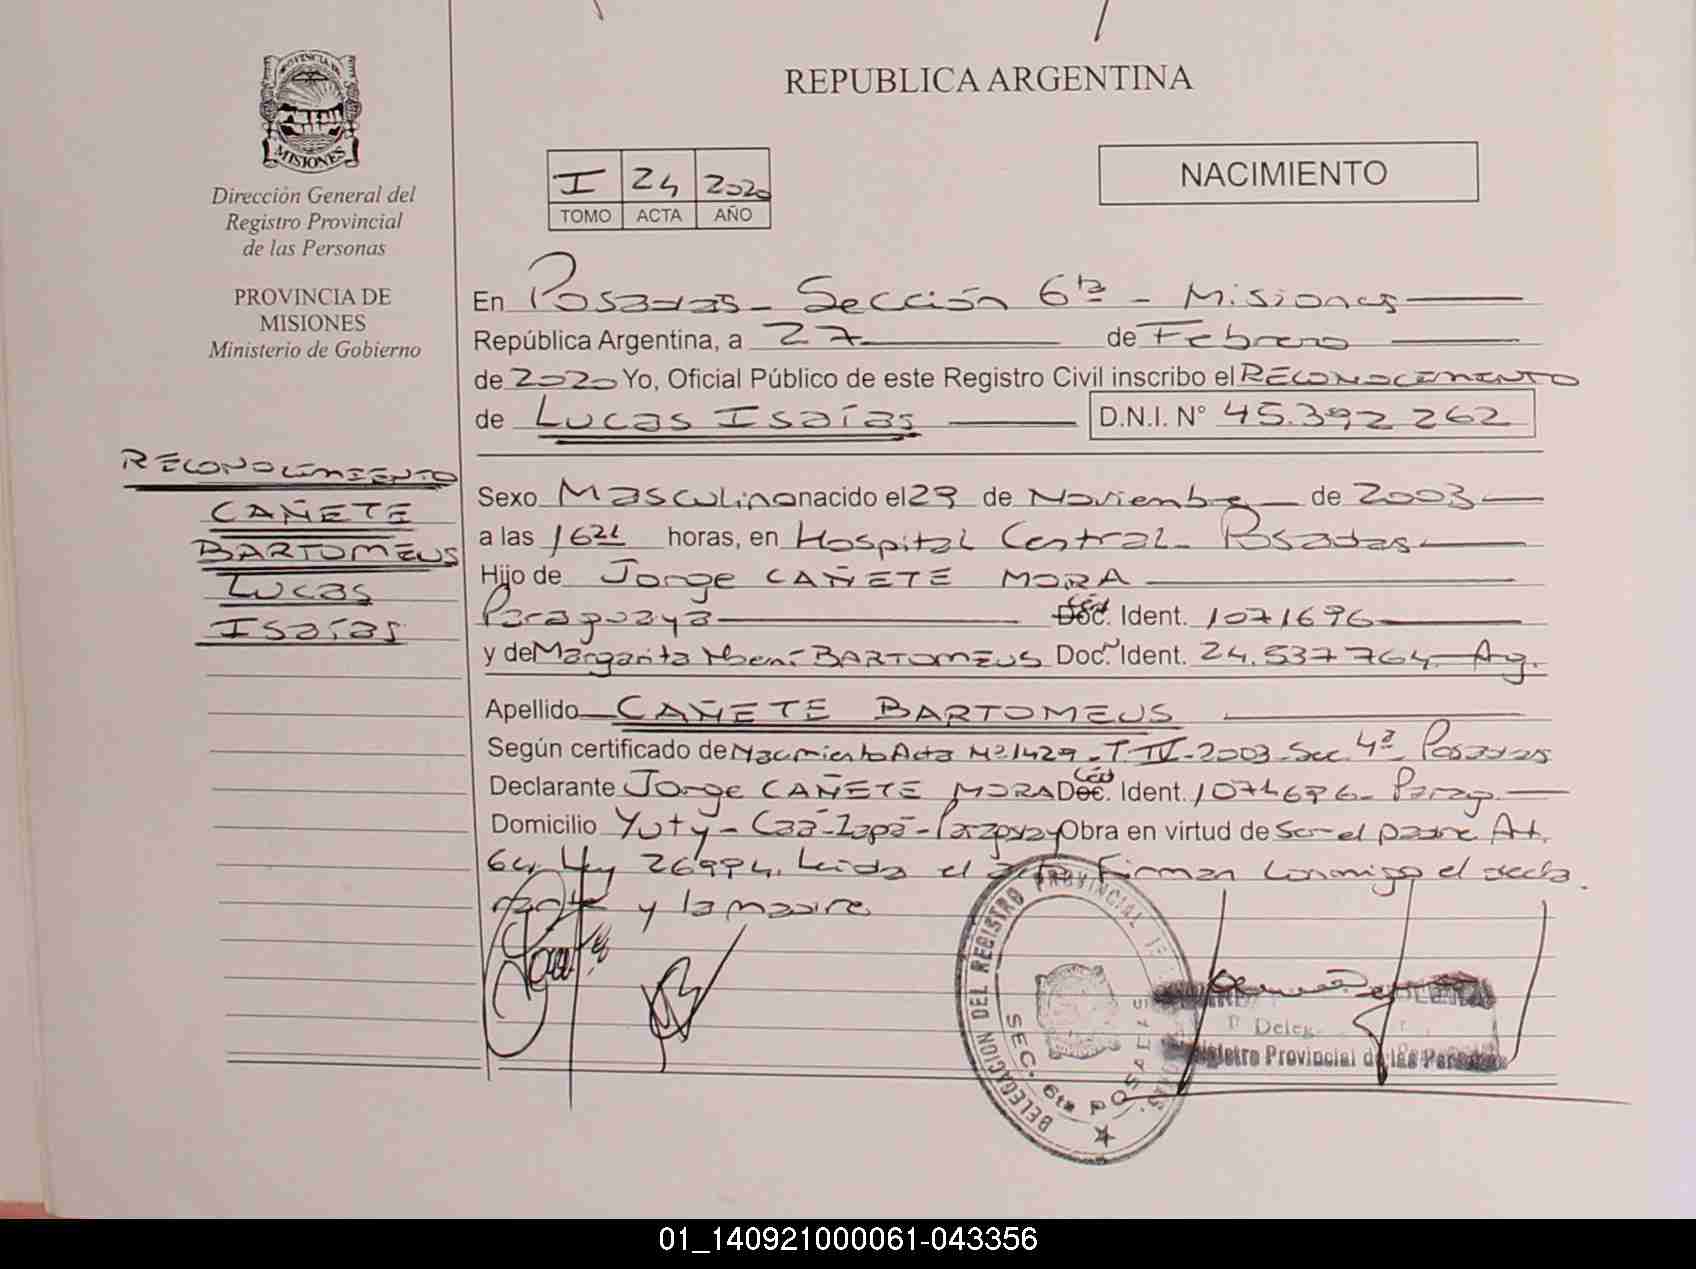 REPUBLICA ARGENTINA
PROVINCIA DE
MISIONES
Dirección General del
Registro Provincial
de las Personas
PROVINCIA DE
MISIONES
Ministerio de Gobierno
I 24 2020
TOMO ACTA AÑO
NACIMIENTO
En Posadas - Sección 6ta - Misiones
República Argentina, a 27 de Febrero
de 2020 Yo, Oficial Público de este Registro Civil inscribo el RECONOCIMIENTO
de Lucas Isaías D.N.I. N° 45.392 262
RECONOCIMIENTO
CAÑETE
BARTOMEUS
Lucas
Isaías
Sexo Masculino nacido el 29 de Noviembre de 2003
a las 16 21 horas, en Hospital Central - Posadas
Hijo de Jorge CAÑETE MORA
Paraguaya Ced. Ident. 1071696
y de Margarita BARTOMEUS Doc. Ident. 24.537764 Ag.
Apellido CAÑETE BARTOMEUS
Según certificado de Nacimiento Acta Nº 1429 - T IV - 2003 - Sec. 4ª Posadas
Declarante Jorge CAÑETE MORA Ced. Ident. 1071696 - Parag.
Domicilio Yuty - Caá-Zapá - Paraguay Obra en virtud de Ser el padre Art.
64 Ley 26994. Leida el acta Firman conmigo el decla
rante y la madre
DELEGACION DEL REGISTRO PROVINCIAL
SEC. 6ta POSADAS
Deleg.
Registro Provincial de las Personas
01_140921000061-043356